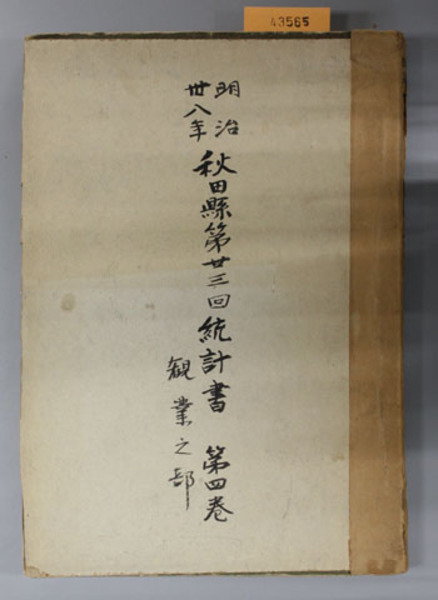 43565
明治
卅八年
秋田縣第廿三回統計書 第四巻
観業之部